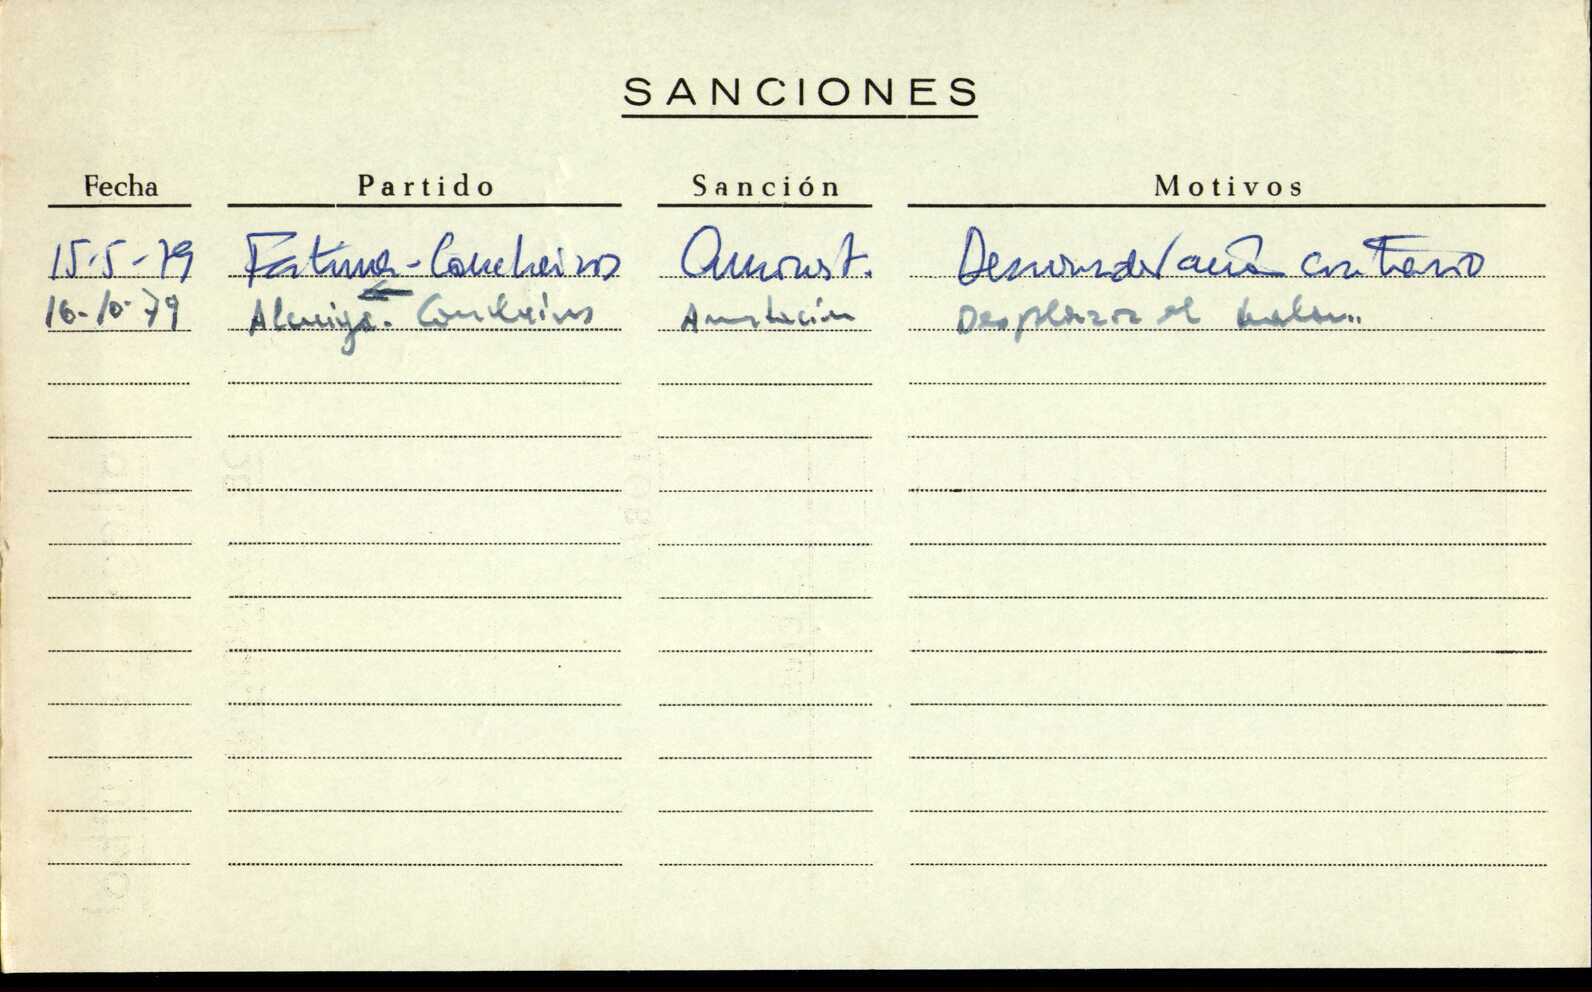 SANCIONES
Fecha Partido Sanción Motivos
15-5-79 Fatima-Concheiros Amonest. Desconsideración contrario
16-10-79 Concheiros Amonstación Desplazar el balón